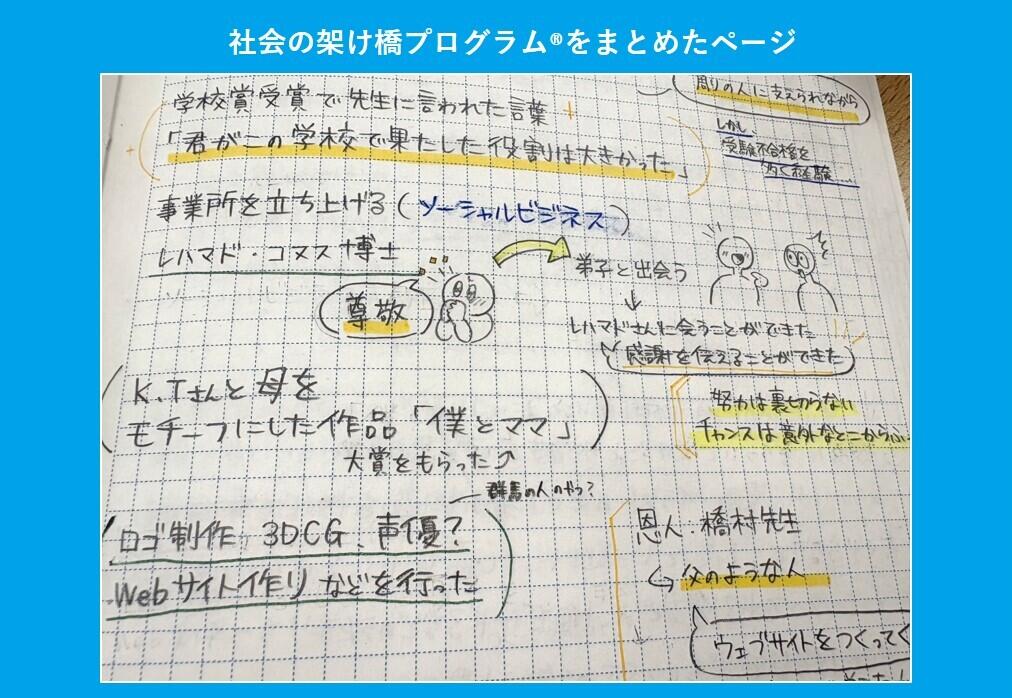 社会の架け橋プログラム®をまとめたページ
学校賞受賞で先生に言われた言葉
「君がこの学校で果たした役割は大きかった」
事業所を立ち上げる(ソーシャルビジネス)
レハマド・コヌヌ博士
尊敬
K.Tさんと母を
モチーフにした作品「僕とママ」
大賞をもらった
群馬の人のやつ?
ロゴ制作 3DCG、声優?
Webサイト作りなどを行った
周りの人に支えられながら
しかし、
受験不合格を
多く経験...
弟子と出会う
↓
レハマドさんに会うことができた
感謝を伝えることができた
努力は裏切らない
チャンスは意外なとこから
恩人・橋村先生
↪父のような人
ウェブサイトをつくってく